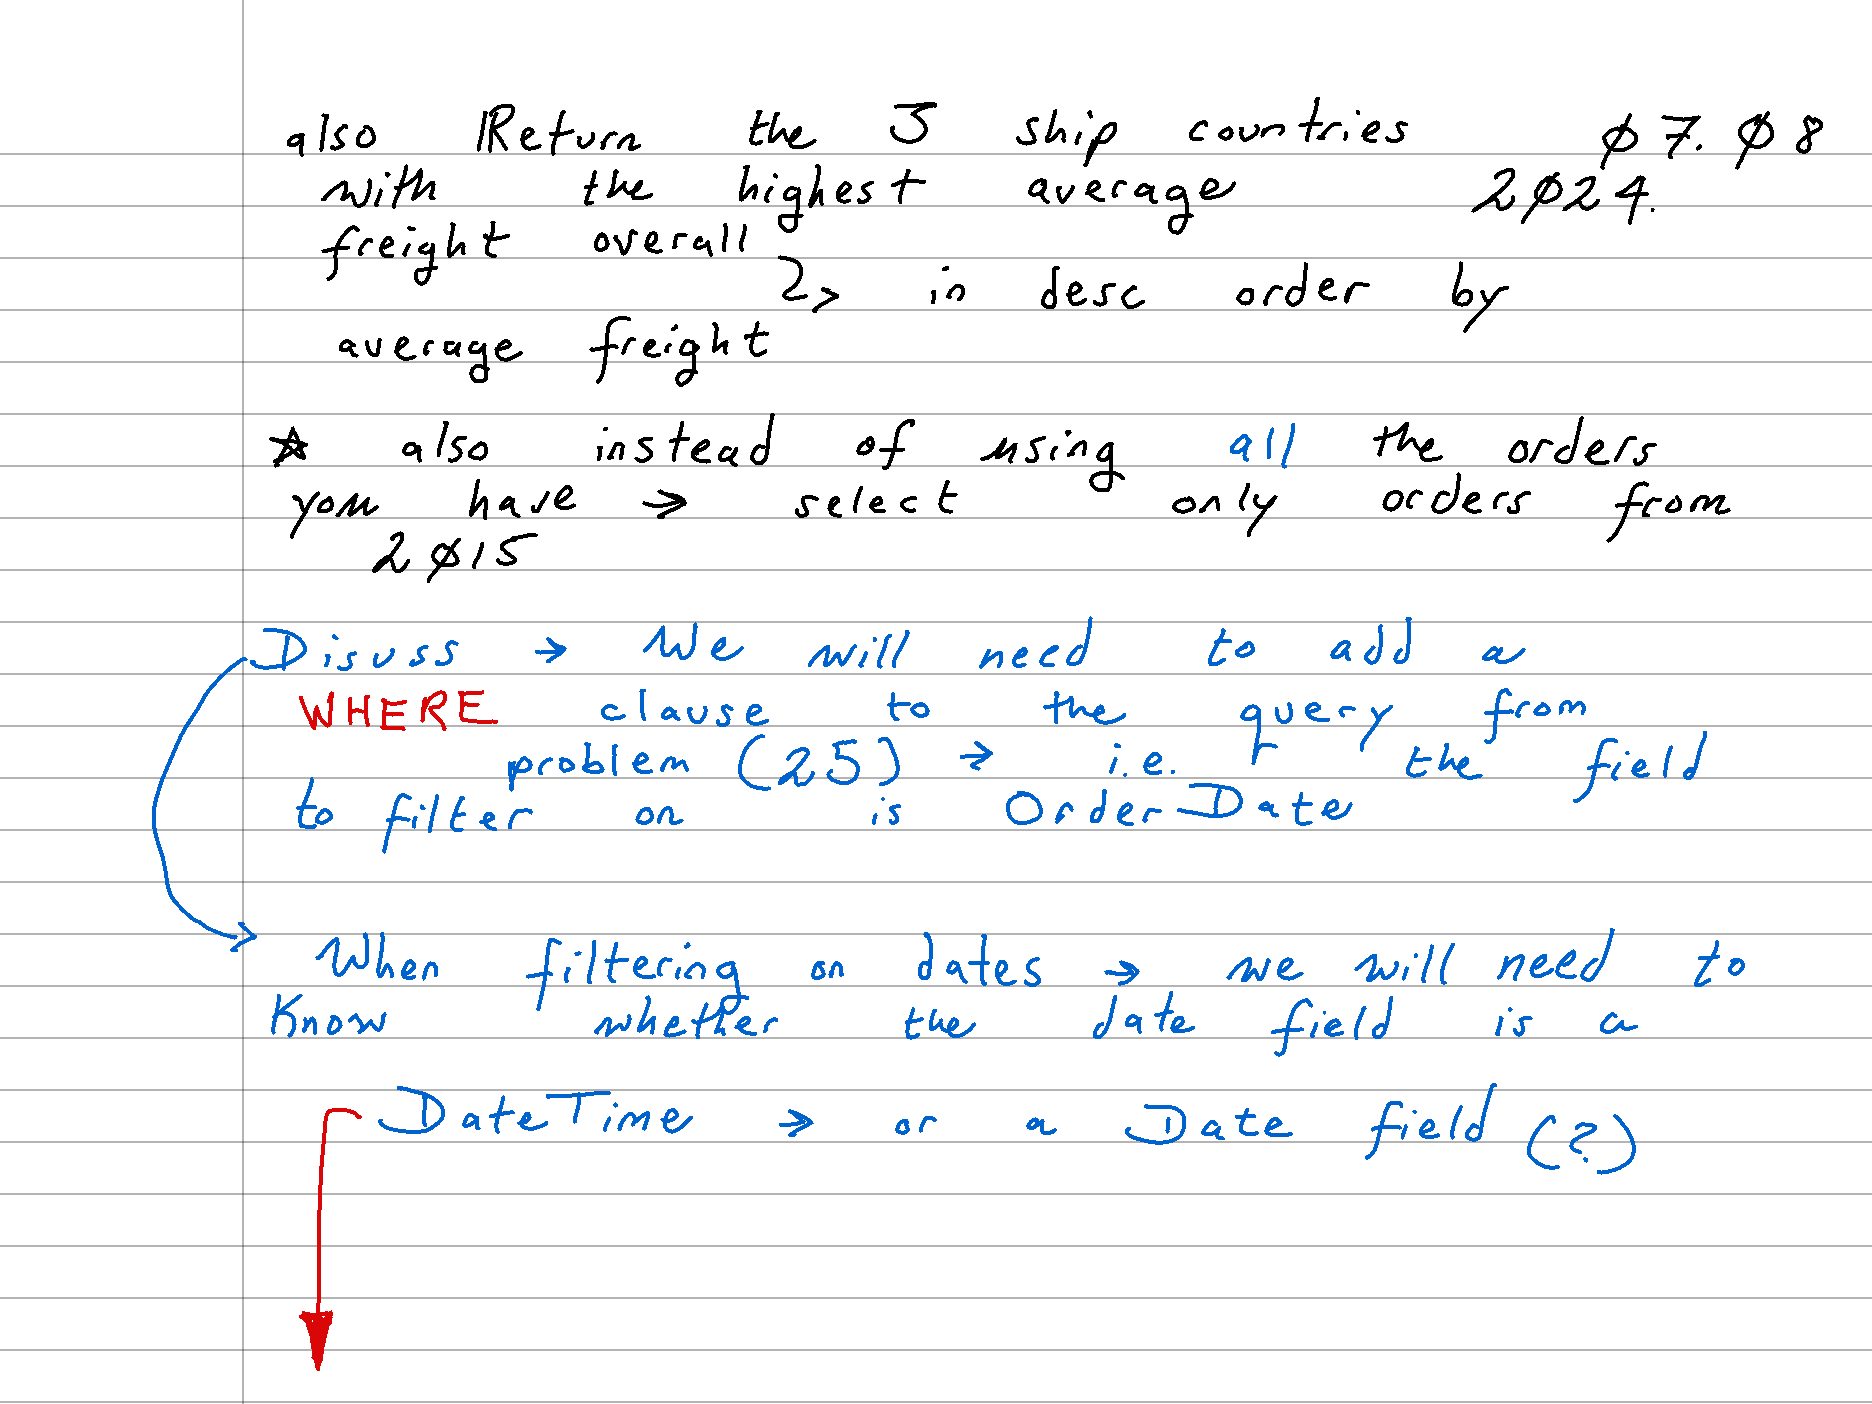 also Return the 3 ship countries ø7. ø8
with the highest average 2ø24.
freight overall
↳ in desc order by
average freight
☆ also instead of using all the orders
you have → select only orders from
2ø15
Disuss → We will need to add a
WHERE clause to the query from
problem (25) → i.e. the field
to filter on is OrderDate
When filtering on dates → we will need to
Know whether the date field is a
DateTime → or a Date field (?)